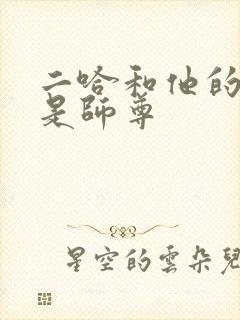 二哈和他的
是師尊
星空的雲朵兒